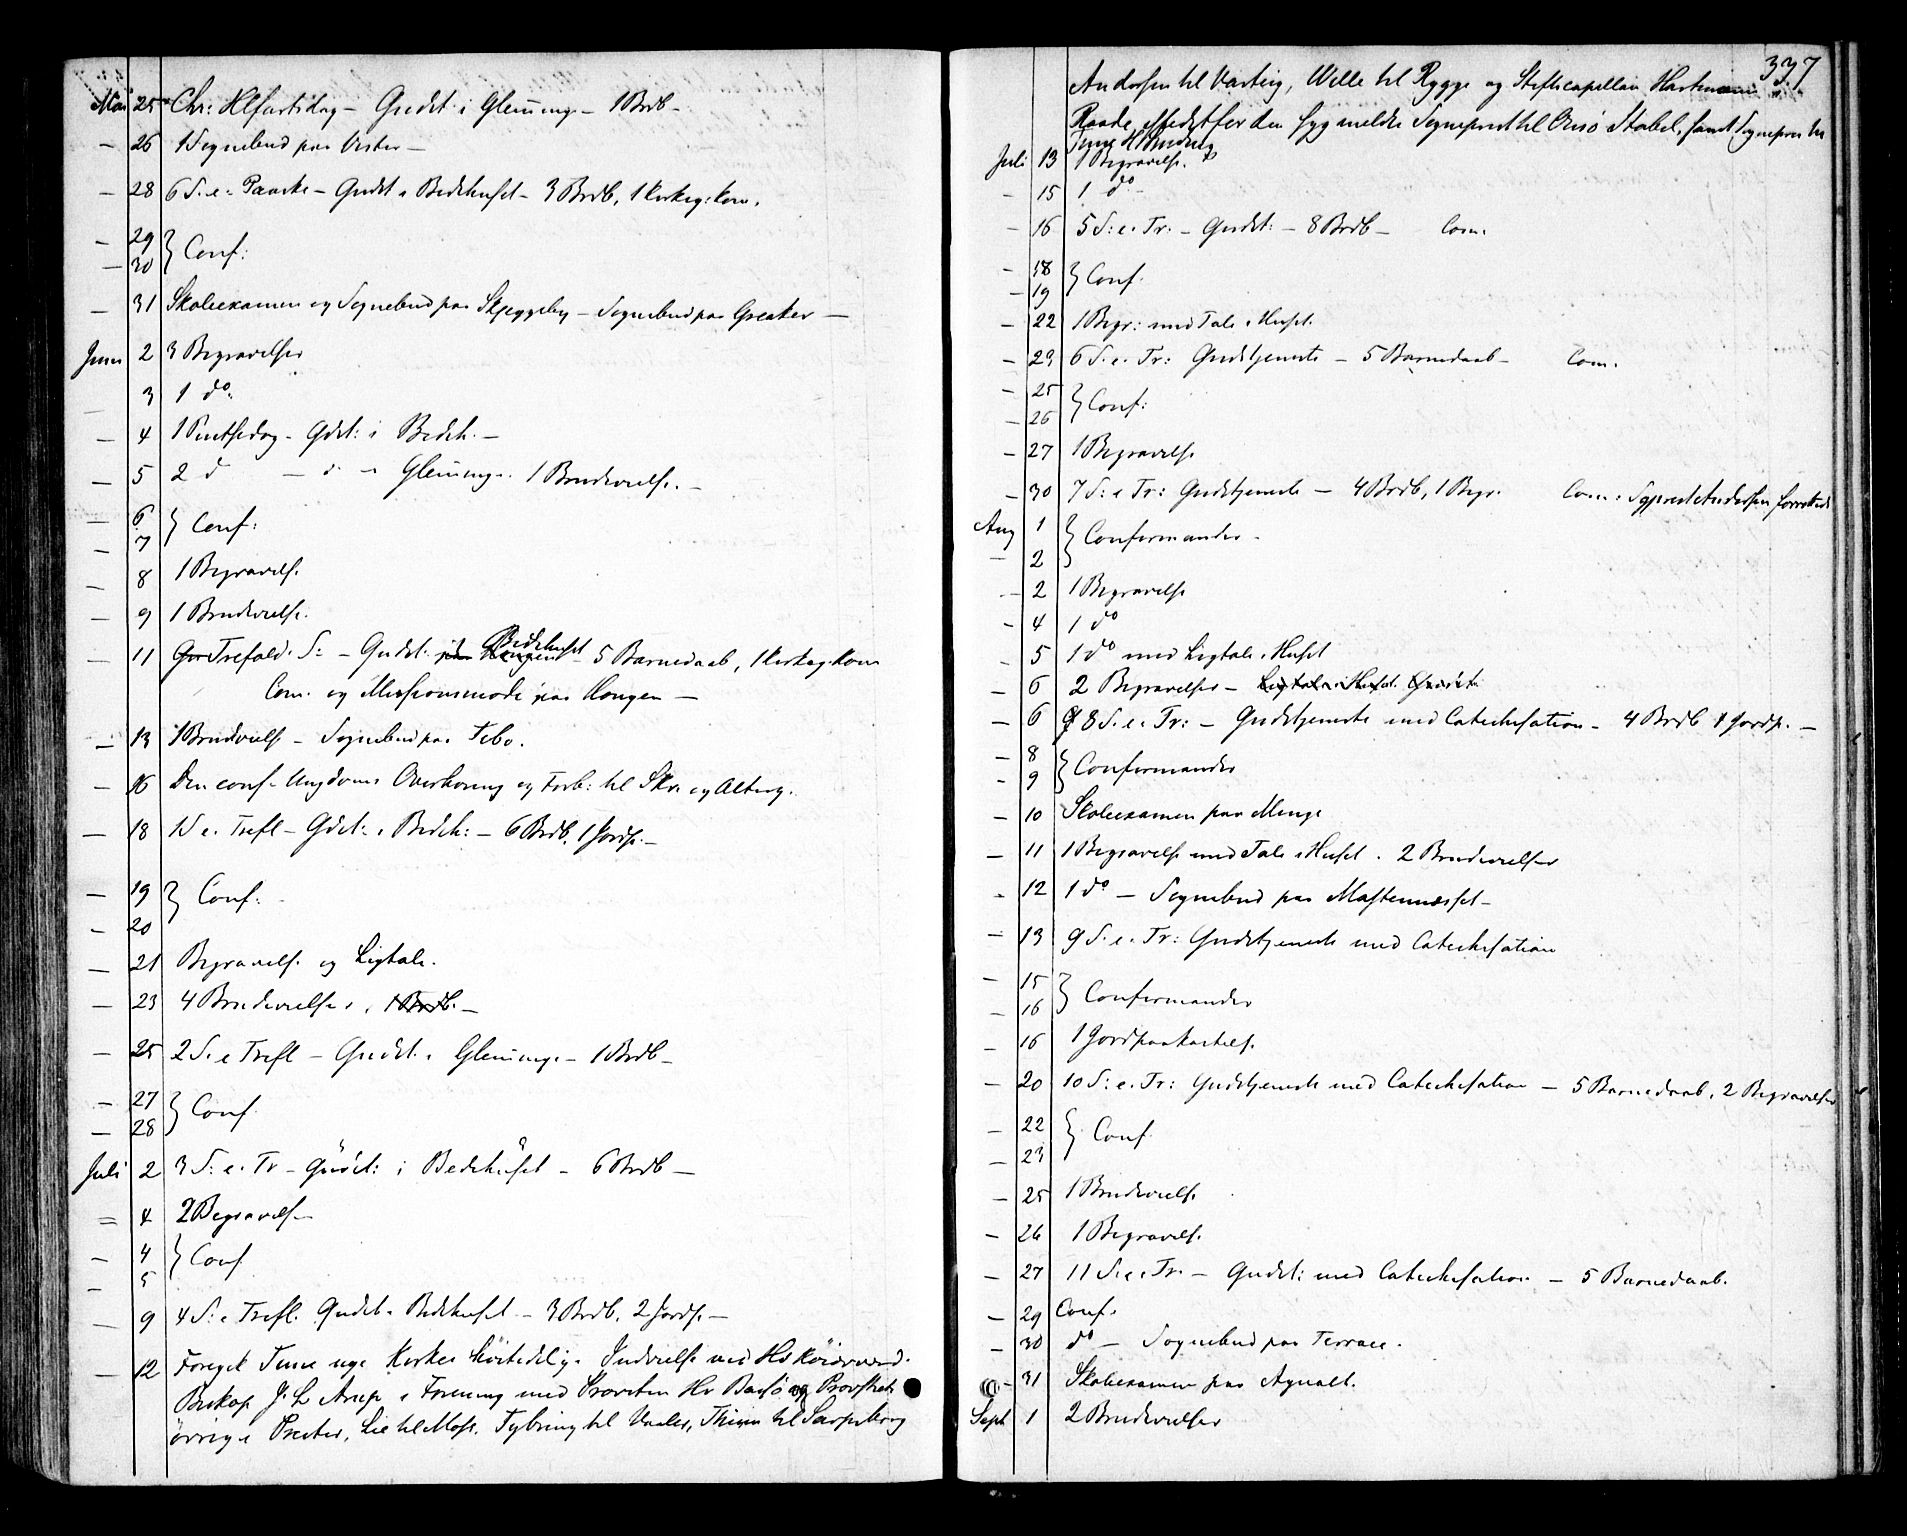 Mai 25 Chr: Hlfartsdag - Gudst: i Glemminge - 1 Brdb -
- 26 1 Sognebud paa Vister -
- 28 6 S. e. Paaske - Gudst i Bedehuset - 3 Brdb, 1 Kirkeg:kone.
- 29
- 30 } Conf:
- 31 Skoleexamen og Sognebud paa Skjeggeby - Sognebud paa Greaker -
Juni 2 3 Begravelser
3 1 do:
- 4 1 Pintsedag - Gdst: i Bedeh. -
- 5 2 d - d - Glemminge. 1 Brudevielse. -
- 6
- 7 } Conf:
- 8 1 Begravelse
- 9 1 Brudevielse.
- 11 Trefold. S: - Gudst. Bedehuset - 5 Barnedaab, 1 Kirkeg.kone
Com. og Missionsmøde paa Haugen -
- 13 1 Brudevielse - Sognebud paa Tebo.
- 16 Den conf. Ungdoms Overhøring og Forb: til Skr. og Alterg.
- 18 1 S e. Trefl - Gdst: i Bedeh: - 6 Brdb, 1 Jordp. -
- 19
- 20 } Conf:
- 21 Begravelse og Ligtale.
- 23 4 Brudevielser, 1 Brdb. -
- 25 2 S. e Trefl - Gudst. i Glemminge - 1 Brdb -
- 27
- 28 } Conf.
Juli 2 3 S: e. Tr - Gudst: i Bedehuset - 6 Brdb -
= 4 2 Begravelser
- 4
- 5 } Conf
- 9 4 S: e Trefl. Gudst i Bedehuset - 3 Brdb. 2 Jordp. -
- 12 Foregik Tune nye Kirkes høitidelige Indvielse ved Hs Høiærværd.
Biskop J. L Arup i Forening med Provsten Hr Bassøe og Provstiets
øvrige Prester, Lie til Moss, Tybring til Vaaler, Thiem til Sarpsborg
337
Andersen til Varteig, Wille til Rygge og Stiftscapellan Hartmann
Raade, istedetfor den sygmeldte Sogneprest til Onsø Stabel, samt Sognepresten
Tune H
Juli 13 1 Begravelse.
- 15 1 do -
- 16 5 S: e. Tr. - Gudst: - 8 Brdb - Com.
- 18
- 19 } Conf.
- 22 1 Begr: med Tale i Huset.
- 23 6 S. e. Tr: Gudstjeneste - 5 Barnedaab - Com.
- 25
- 26 } Conf:
- 27 1 Begravelse
- 30 7 S: e Tr: Gudstjeneste - 4 Brdb, 1 Begr. Com: Sgprest Andersen forrettede
Aug 1
- 2 } Confirmander -
- 2 1 Begravelse
- 4 1 do
- 5 1 do med Ligtale i Huset
- 6 2 Begravelser - Ligtale i Huset. Gudst:
- 6 8 S. e. Tr: - Gudstjeneste med Catechisation - 4 Brdb 1 Jordp. -
- 8
- 9 } Confirmander
- 10 Skoleexamen paa Minge
- 11 1 Begravelse med Tale i Huset. 2 Brudevielser
- 12 1 do - Sognebud paa Mastemnesset -
- 13 9 S. e. Tr: Gudstjeneste med Catechisation
- 15
- 16 } Confirmander
- 16 1 Jordpaakastelse.
- 20 10 S: e. Tr: Gudstjeneste med Catechisation - 5 Barnedaab, 2 Begravelser
- 22
- 23 } Conf.
- 25 1 Brudevielse
- 26 1 Begravelse.
- 27 11 S. e. Tr. - Gudst: med Catechisation - 5 Barnedaab.
- 29 Conf.
- 30 do - Sognebud paa Terrace.
- 31 Skoleexamen paa Agnalt.
Sept 1 2 Brudevielser